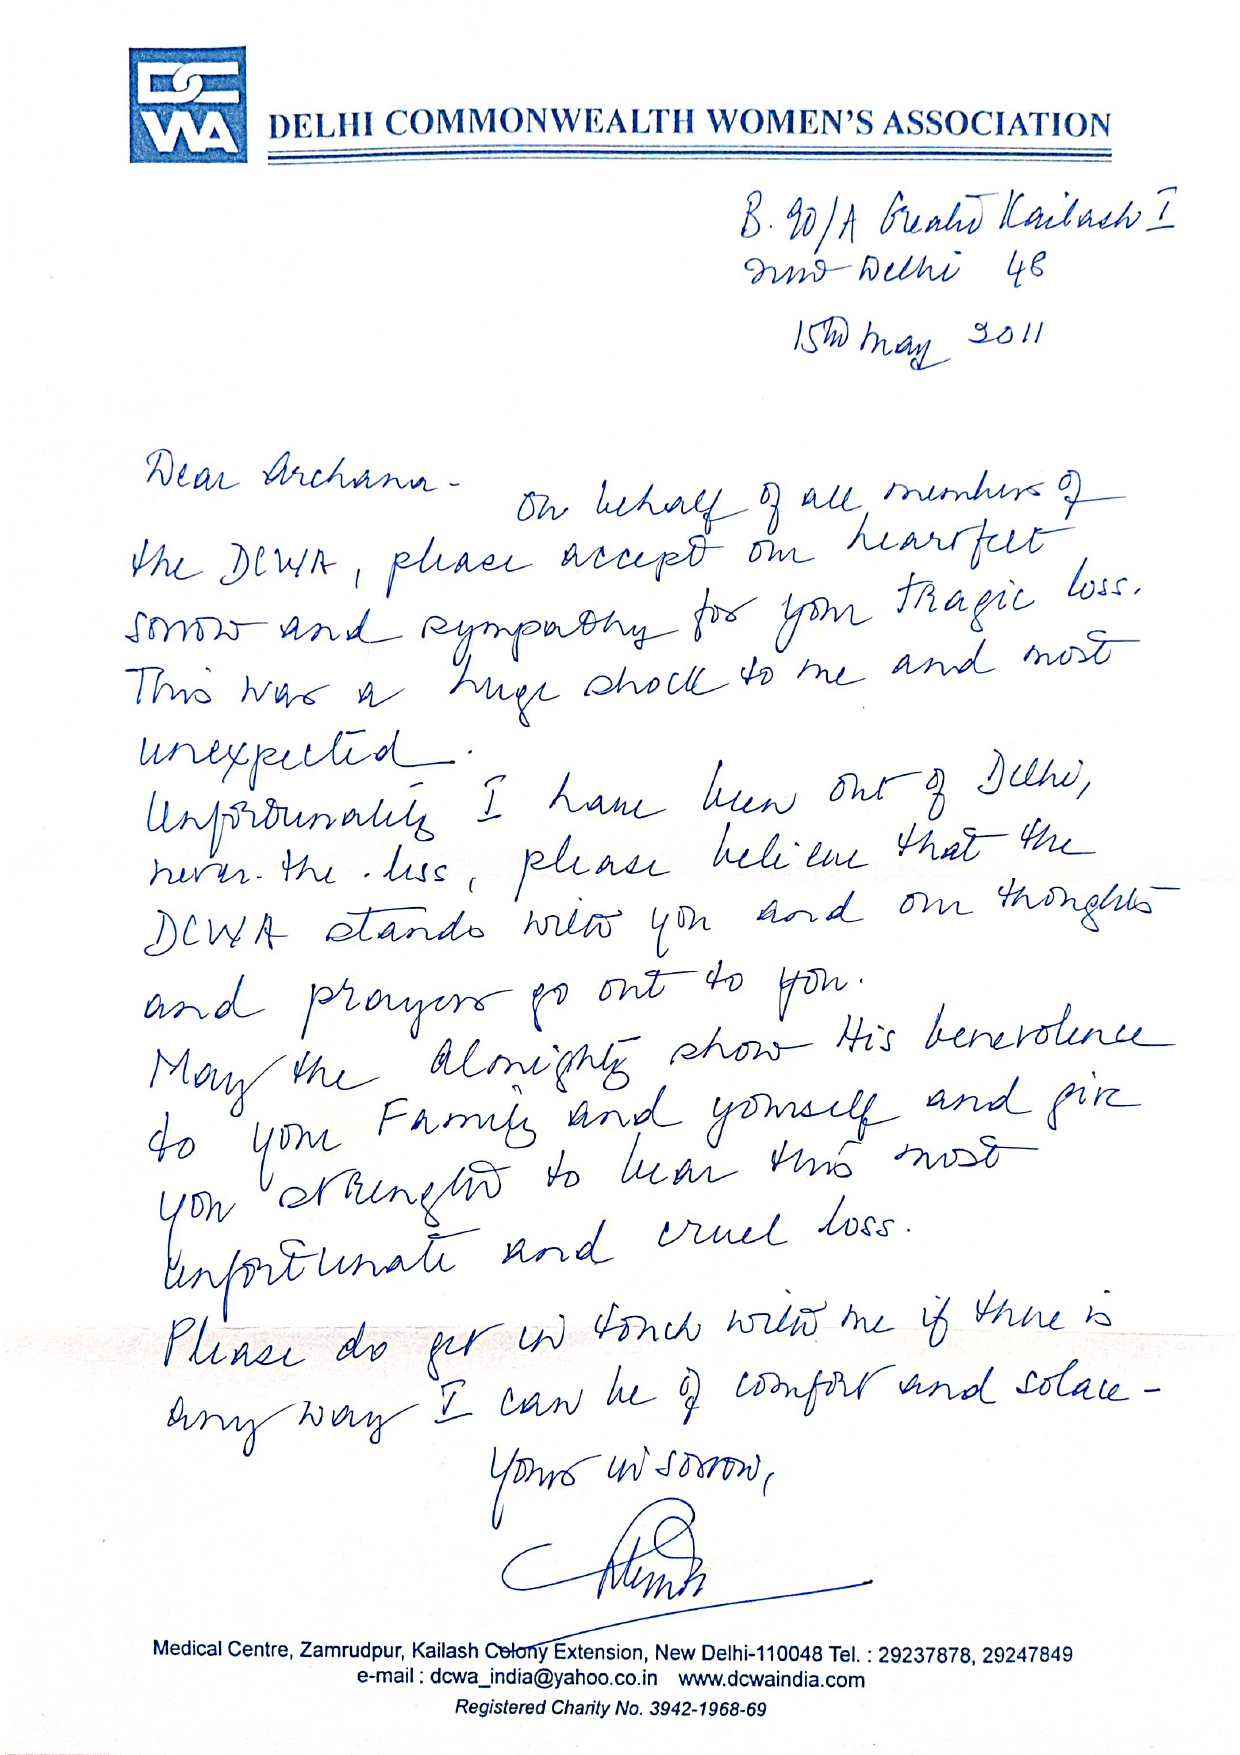 DCWA
DELHI COMMONWEALTH WOMEN'S ASSOCIATION
B. 90/A Greater Kailash I
New Delhi 48
15th May 2011
Dear Archana -
On behalf of all members of
the DCWA, please accept our heartfelt
sorrow and sympathy for your tragic loss.
This was a huge shock to me and most
unexpected.
Unfortunately I have been out of Delhi,
never-the-less, please believe that the
DCWA stands with you and our thoughts
and prayers go out to you.
May the Almighty show His benevolence
to your Family and yourself and give
you strength to bear this most
unfortunate and cruel loss.
Please do get in touch with me if there is
any way I can be of comfort and solace -
Yours in sorrow,
Medical Centre, Zamrudpur, Kailash Colony Extension, New Delhi-110048 Tel. : 29237878, 29247849
e-mail : dcwa_india@yahoo.co.in www.dcwaindia.com
Registered Charity No. 3942-1968-69